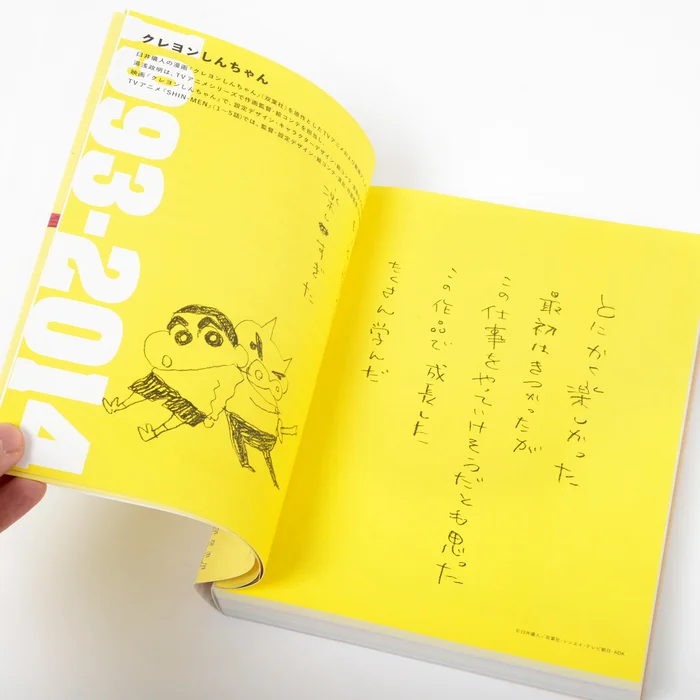 1993-2014
クレヨンしんちゃん
臼井儀人の漫画『クレヨンしんちゃん』(双葉社)を原作としたTVアニメ
湯浅政明は、TVアニメシリーズで作画監督・絵コンテを担当し、
映画『クレヨンしんちゃん』で、設定デザイン・キャラクターデザイン・絵コンテ
TVアニメ『SHIN-MEN』(1〜5話)では、監督・設定デザイン・絵コンテ・演出
楽しすぎた
とにかく楽しかった
最初はきつかったが
この仕事をやっていけそうだとも思った
この作品で成長した
たくさん学んだ
©臼井儀人/双葉社・シンエイ・テレビ朝日・ADK